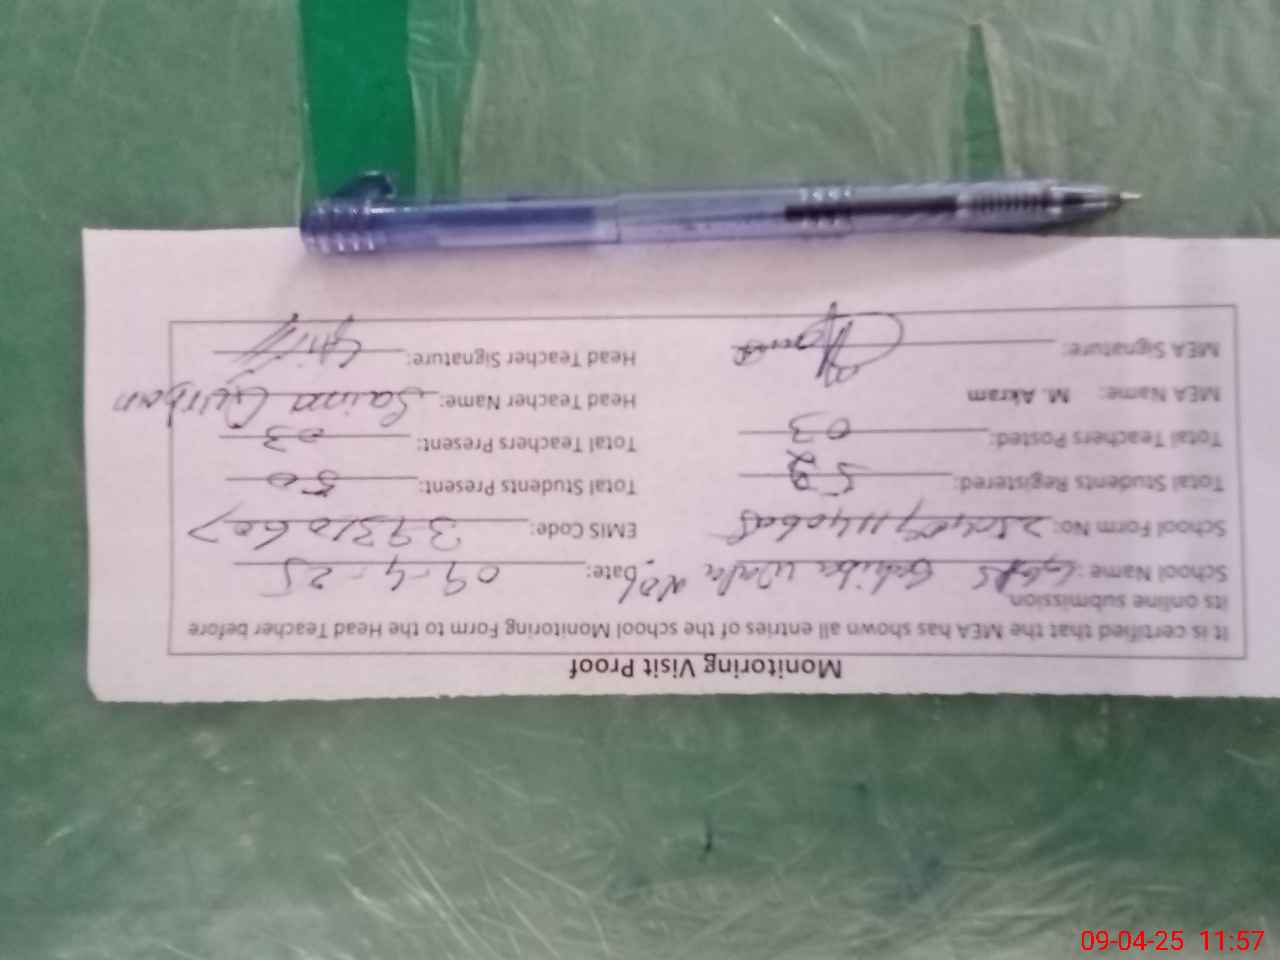 Monitoring Visit Proof
It is certified that the MEA has shown all entries of the school Monitoring Form to the Head Teacher before
its online submission.
School Name: GGPS Wala Date: 09-4-25
School Form No: EMIS Code: 39310607
Total Students Registered: 52 Total Students Present: 50
Total Teachers Posted: 03 Total Teachers Present: 03
MEA Name: M. Akram Head Teacher Name: Saima Qurban
MEA Signature: Head Teacher Signature:
09-04-25 11:57